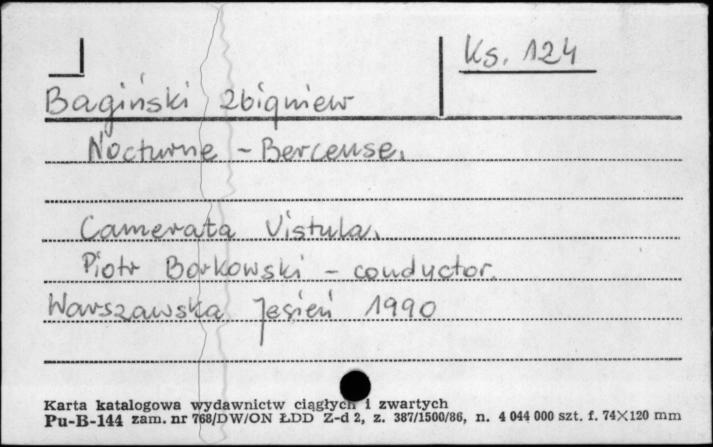 Ks. 124
Bagiński Zbigniew
Nocturne - Berceuse.
Camerata Vistula.
Piotr Borkowski - conductor.
Warszawska Jesień 1990
Karta katalogowa wydawnictw ciągłych i zwartych
Pu-B-144 zam. nr 768/DW/ON ŁDD Z-d 2, z. 387/1500/86, n. 4 044 000 szt. f. 74×120 mm